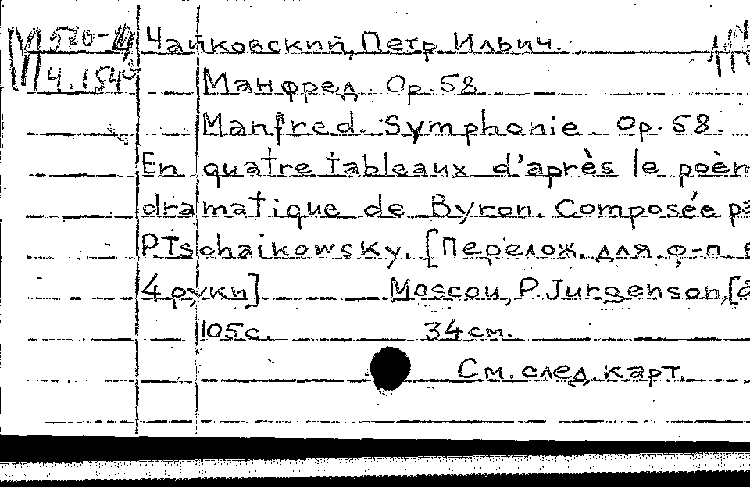 Чайковский, Петр Ильич.
4.154
Манфред. Op. 58
Manfred. Symphonie Op. 58.
En quatre tableaux d'après le poèm
dramatique de Byron. Composée pa
P. Tschaikowsky. [Перелож. для ф-п в
4 руки] Moscou, P. Jurgenson, [
105 с. 34 см.
См. след. карт.